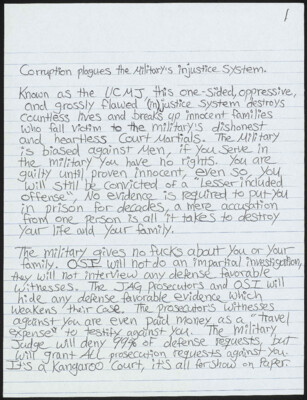 1
Corruption plagues the Military's injustice System.
Known as the UCMJ, this one-sided, oppressive,
and grossly flawed (in)justice System destroys
countless lives and breaks up innocent families
who fall victim to the military's dishonest
and heartless Court Martials. The Military
is biased against Men, if you serve in
the military you have no rights. You are
guilty until proven innocent, even so, you
will still be convicted of a "Lesser included
offense". No evidence is required to put you
in prison for decades, a mere accusation
from one person is all it takes to destroy
your life and your family.
The military gives no fucks about you or your
family. OSI will not do an impartial investigation,
they will not interview any defense favorable
witnesses. The JAG prosecutors and OSI will
hide any defense favorable evidence which
weakens their case. The prosecutor's witnesses
against you are even paid money as a "travel
expense" to testify against you. The military
Judge will deny 99% of defense requests, but
will grant ALL prosecution requests against you.
It's a Kangaroo Court, it's all for show on Paper